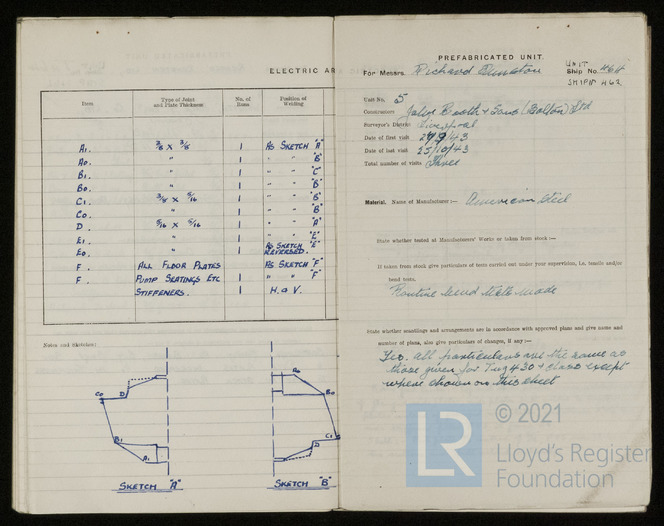 ELECTRIC AR
Item
Type of Joint and Plate Thickness
No. of Runs
Position of Welding
A1. 3/8 x 3/8 1 As SKETCH "A"
A0. " 1 " " "B"
B1. " 1 " " "C"
B0. " 1 " " "D"
C1. 3/8 x 5/16 1 " " "B"
C0. " 1 " " "B"
D. 5/16 x 5/16 1 " " "A"
E1. " 1 " " "E"
E0. " 1 AS SKETCH "E" REVERSED.
F. ALL FLOOR PLATES 1 AS SKETCH "F"
F. PUMP SEATINGS ETC 1 " " "F"
STIFFENERS. 1 H & V.
Notes and Sketches:
C0 D
B1
A1
SKETCH "A"
A0
B0
C1
D
SKETCH "B"
PREFABRICATED UNIT.
UNIT
For Messrs. Richard Dunston Ship No. 464
SHIP No 462
Unit No. 5
Constructors John Booth & Sons (Bolton) Ltd
Surveyor's District Liverpool
Date of first visit 29/9/43
Date of last visit 25/10/43
Total number of visits Three
Material. Name of Manufacturer:— American Steel
State whether tested at Manufacturers' Works or taken from stock:—
If taken from stock give particulars of tests carried out under your supervision, i.e. tensile and/or
bend tests.
Routine bend tests made
State whether scantlings and arrangements are in accordance with approved plans and give name and
number of plans, also give particulars of changes, if any:—
Yes. All particulars are the same as
those given for Tug 430 & class except
where shown on this sheet
LR
© 2021
Lloyd's Register
Foundation